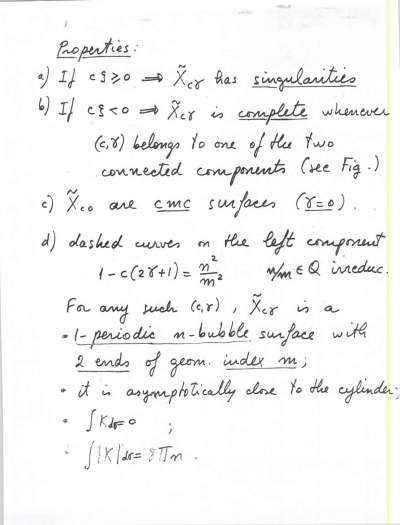 Properties:
a) If cς ⩾ 0 ⟹ X̃cγ has singularities
b) If cς < 0 ⟹ X̃cγ is complete whenever
(c,γ) belongs to one of the two
connected components (see Fig.)
c) X̃c0 are cmc surfaces (γ=0).
d) dashed curves on the left component
1-c(2γ+1) = n²/m² n/m ∈ Q irreduc.
For any such (c,γ), X̃cγ is a
• 1-periodic n-bubble surface with
2 ends of geom. index m;
• it is asymptotically close to the cylinder;
• ∫Kdσ=0 ;
• ∫|K|dσ=8πn.